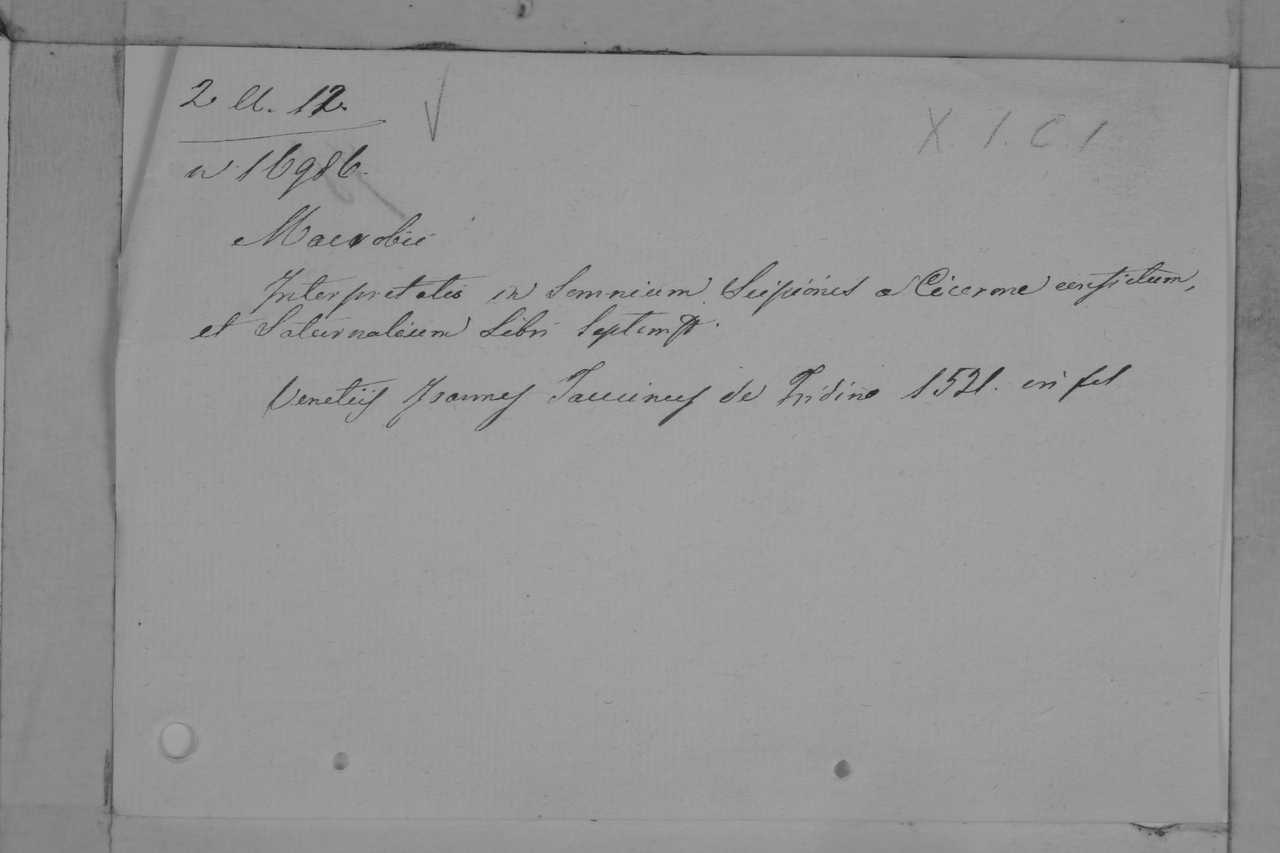 2. ll. 12.
X. 1. C. 1
n. 16986.
Macrobii
Interpretatio in Somnium Scipionis a Cicerone confictum,
et Saturnalium Libri Septem
Venetiis Joannes Tacuinus de Tridino 1521. in fol